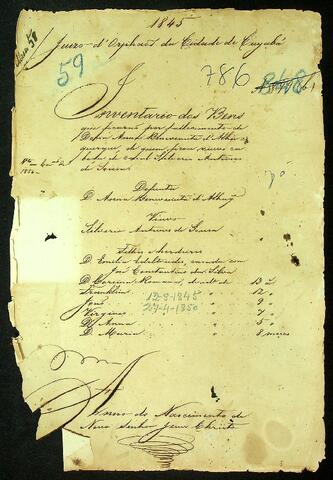 1845
Juizo d'Orphãos da Cidade de Cuyabá
59
786
Inventario dos Bens
que ficarão por fallecimento de
Dona Anna Benvenuta d'Albu-
querque, de quem ficou viuvo ca-
beça de casal Silverio Antunes
de Sousa
Defunta
D. Anna Benvenuta d'Albuqe
Viuvo
Silverio Antunes de Sousa
Filhos e herdeiros
D. Emilia casada com
José Constantino da Silva
D. Romana, idade de 13 a.
Franklin " 12 "
José " 9 "
Virginio " 7 "
D. Anna " 5 "
D. Maria " 8 mezes
12-9-1845
27-4-1850
Anno do Nascimento de
Nosso Senhor Jesus Christo